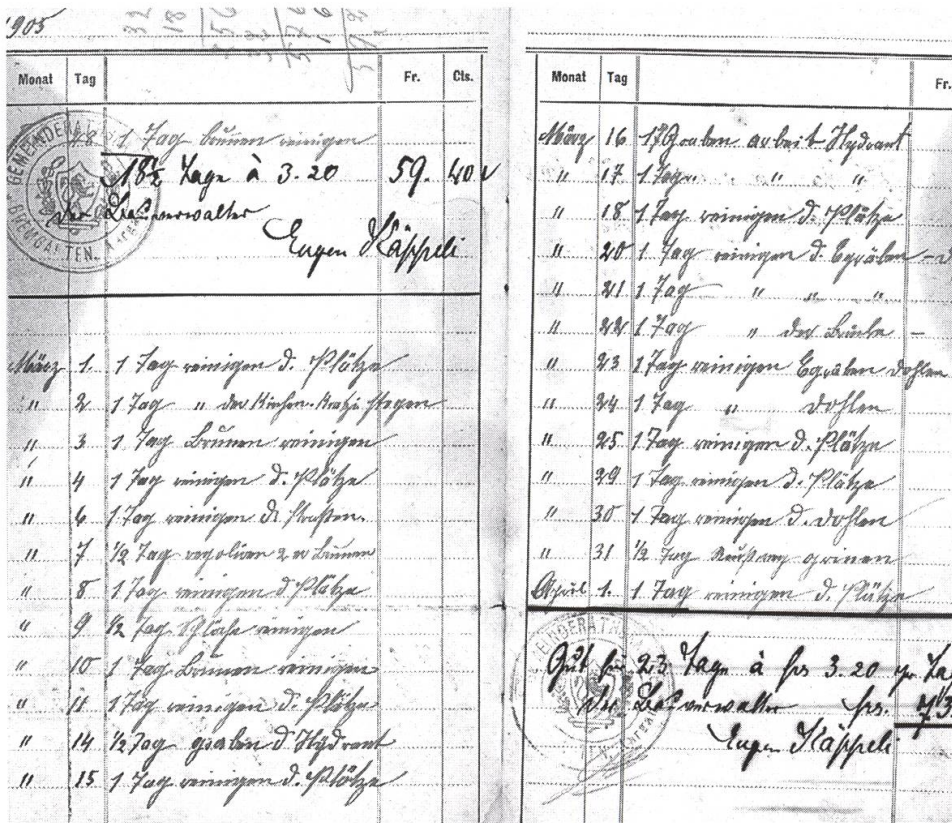 1905
Monat Tag Fr. Cts.
28 1 Tag brunnen reinigen
18½ Tage à 3.20 59. 40
Der Bauverwalter
Eugen Käppeli
März 1. 1 Tag reinigen d. Plätze
" 2 1 Tag " der Kirchen stegen
" 3 1 Tag Brunen reinigen
" 4 1 Tag reinigen d. Plätze
" 6 1 Tag reinigen d. Strassen
" 7 ½ Tag Brunen
" 8 1 Tag reinigen d. Plätze
" 9 ½ Tag reinigen
" 10 1 Tag Brunen reinigen
" 11 1 Tag reinigen d. Plätze
" 14 ½ Tag graben d Hydrant
" 15 1 Tag reinigen d. Plätze
Monat Tag Fr.
März 16 1 Tag Graben arbeit Hydrant
" 17 1 Tag " " "
" 18 1 Tag reinigen d. Plätze
" 20 1 Tag reinigen d. Egräben
" 21 1 Tag " " "
" 22 1 Tag " der
" 23 1 Tag reinigen Egräben Dohlen
" 24 1 Tag " Dohlen
" 25 1 Tag reinigen d. Plätze
" 29 1 Tag reinigen d. Plätze
" 30 1 Tag reinigen d. Dohlen
" 31 ½ Tag
April 1. 1 Tag reinigen d. Plätze
Gut für 23 Tage à frs 3.20 pr Ta
Der Bauverwalter frs. 73
Eugen Käppeli